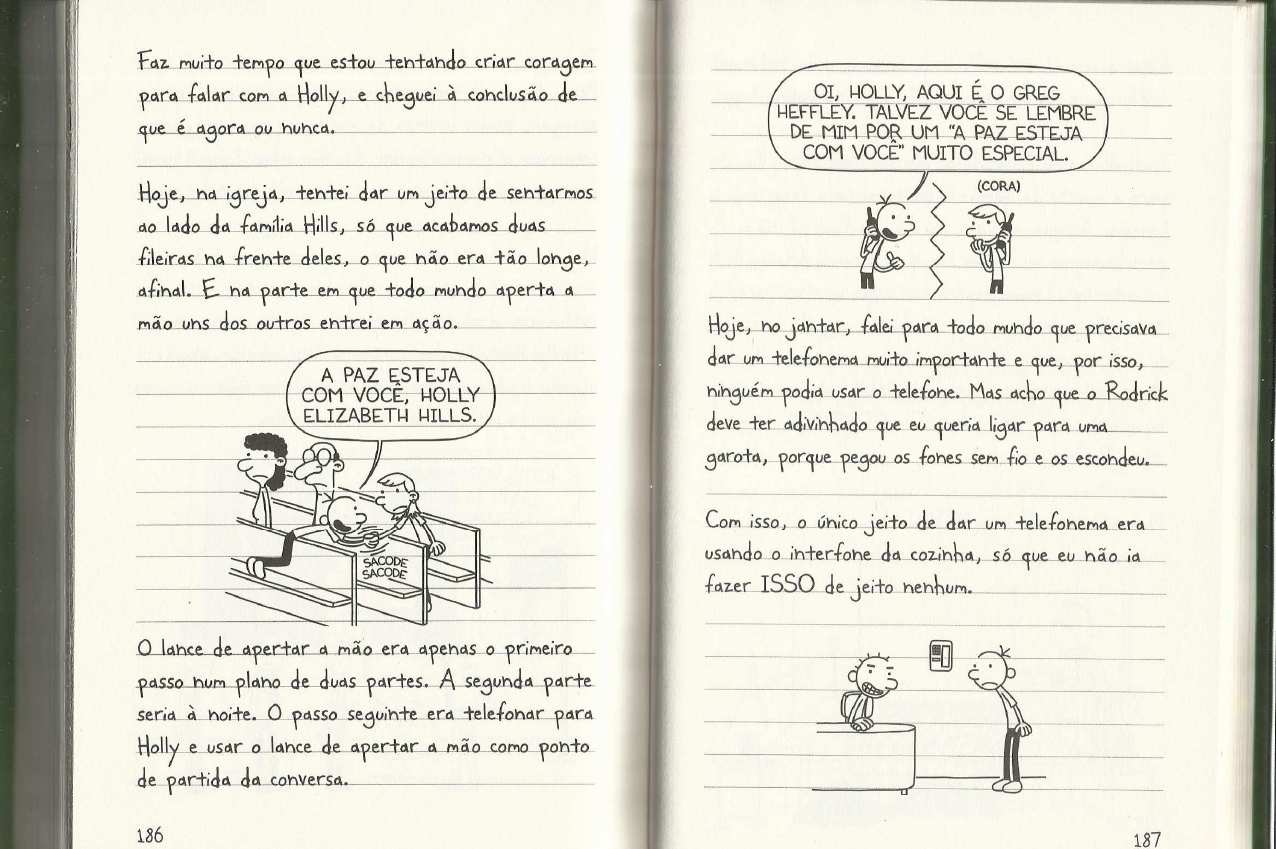 Faz muito tempo que estou tentando criar coragem
para falar com a Holly, e cheguei à conclusão de
que é agora ou nunca.
Hoje, na igreja, tentei dar um jeito de sentarmos
ao lado da família Hills, só que acabamos duas
fileiras na frente deles, o que não era tão longe,
afinal. E na parte em que todo mundo aperta a
mão uns dos outros entrei em ação.
A PAZ ESTEJA
COM VOCÊ, HOLLY
ELIZABETH HILLS.
SACODE
SACODE
O lance de apertar a mão era apenas o primeiro
passo num plano de duas partes. A segunda parte
seria à noite. O passo seguinte era telefonar para
Holly e usar o lance de apertar a mão como ponto
de partida da conversa.
186
OI, HOLLY, AQUI É O GREG
HEFFLEY. TALVEZ VOCÊ SE LEMBRE
DE MIM POR UM "A PAZ ESTEJA
COM VOCÊ" MUITO ESPECIAL.
(CORA)
Hoje, no jantar, falei para todo mundo que precisava
dar um telefonema muito importante e que, por isso,
ninguém podia usar o telefone. Mas acho que o Rodrick
deve ter adivinhado que eu queria ligar para uma
garota, porque pegou os fones sem fio e os escondeu.
Com isso, o único jeito de dar um telefonema era
usando o interfone da cozinha, só que eu não ia
fazer ISSO de jeito nenhum.
187